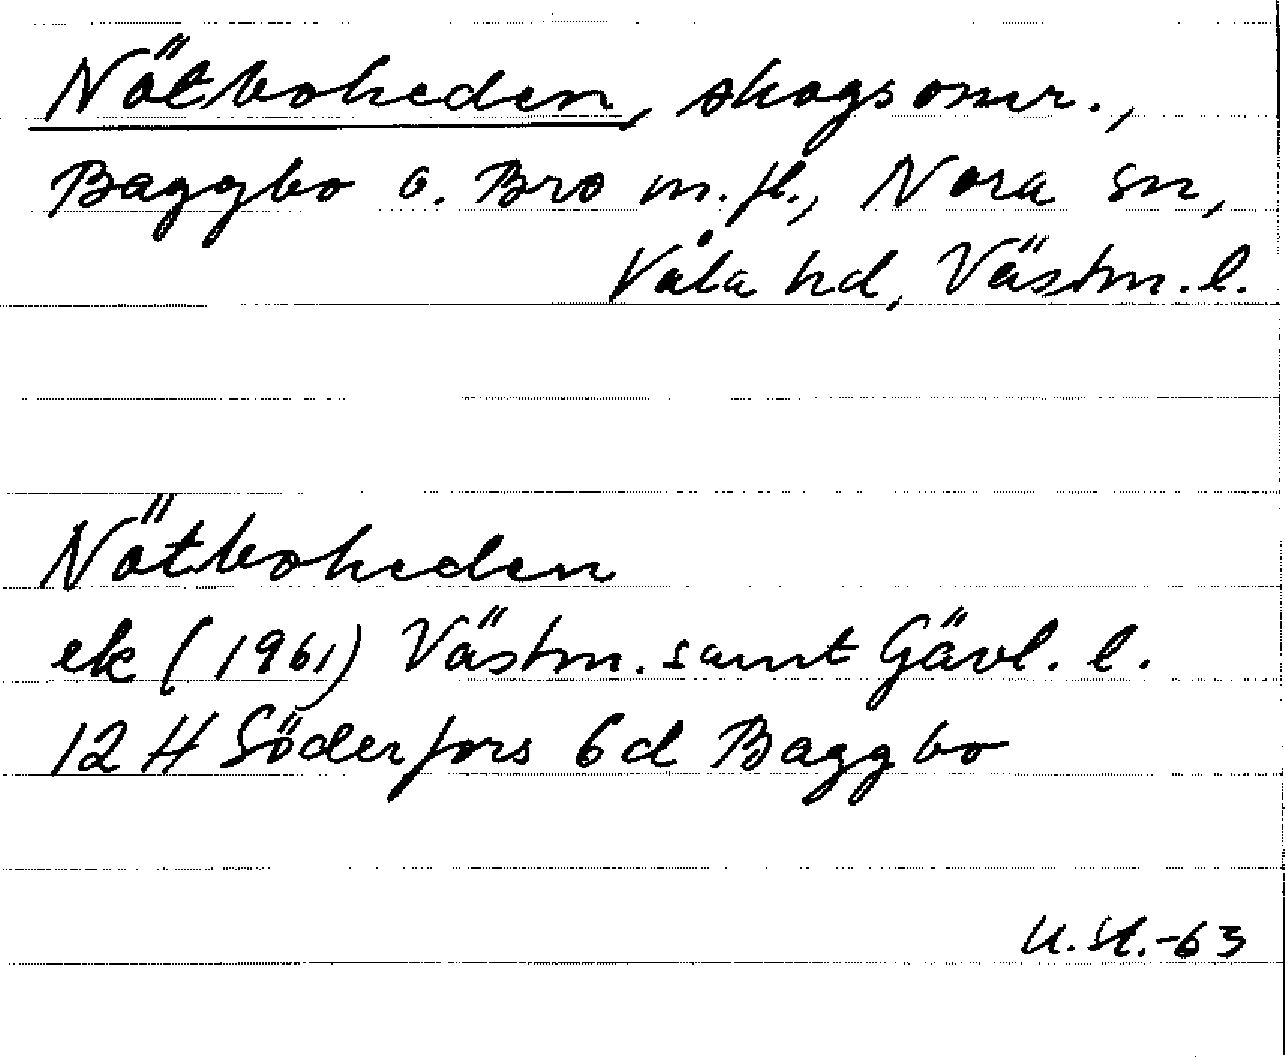 Nötboheden, skogsomr.,
Baggbo o. Bro m.fl., Nora sn,
Våla hd, Västm. l.
Nötboheden
ek (1961) Västm. samt Gävl. l.
12 H Söderfors 6d Baggbo
U. St. -63